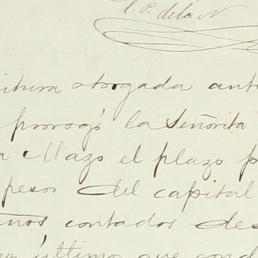 C. P. de la N
itura otorgada ant
prorogó la Señorita
Mazo el plazo p
pesos del capital
ños contados des
último que cond